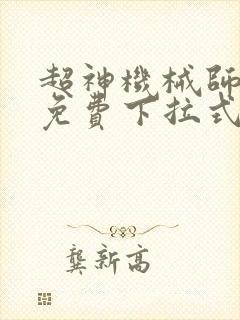 超神機械師
免費下拉式
龔新高